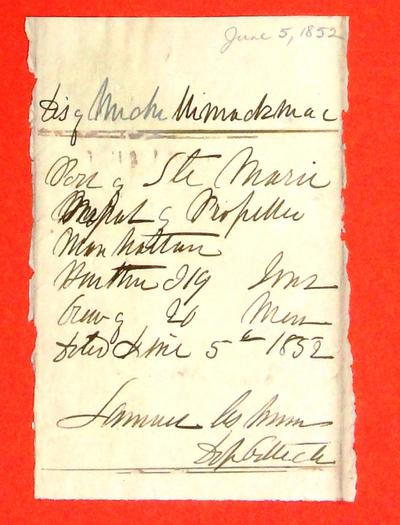 June 5, 1852
Dis of Michi Mimackmac
Port of Ste Marie
Report of Propeller
Manhattan
Burthen 319 Tons
Crew of 20 Men
Dated June 5th 1852
Samuel
Dep Collect